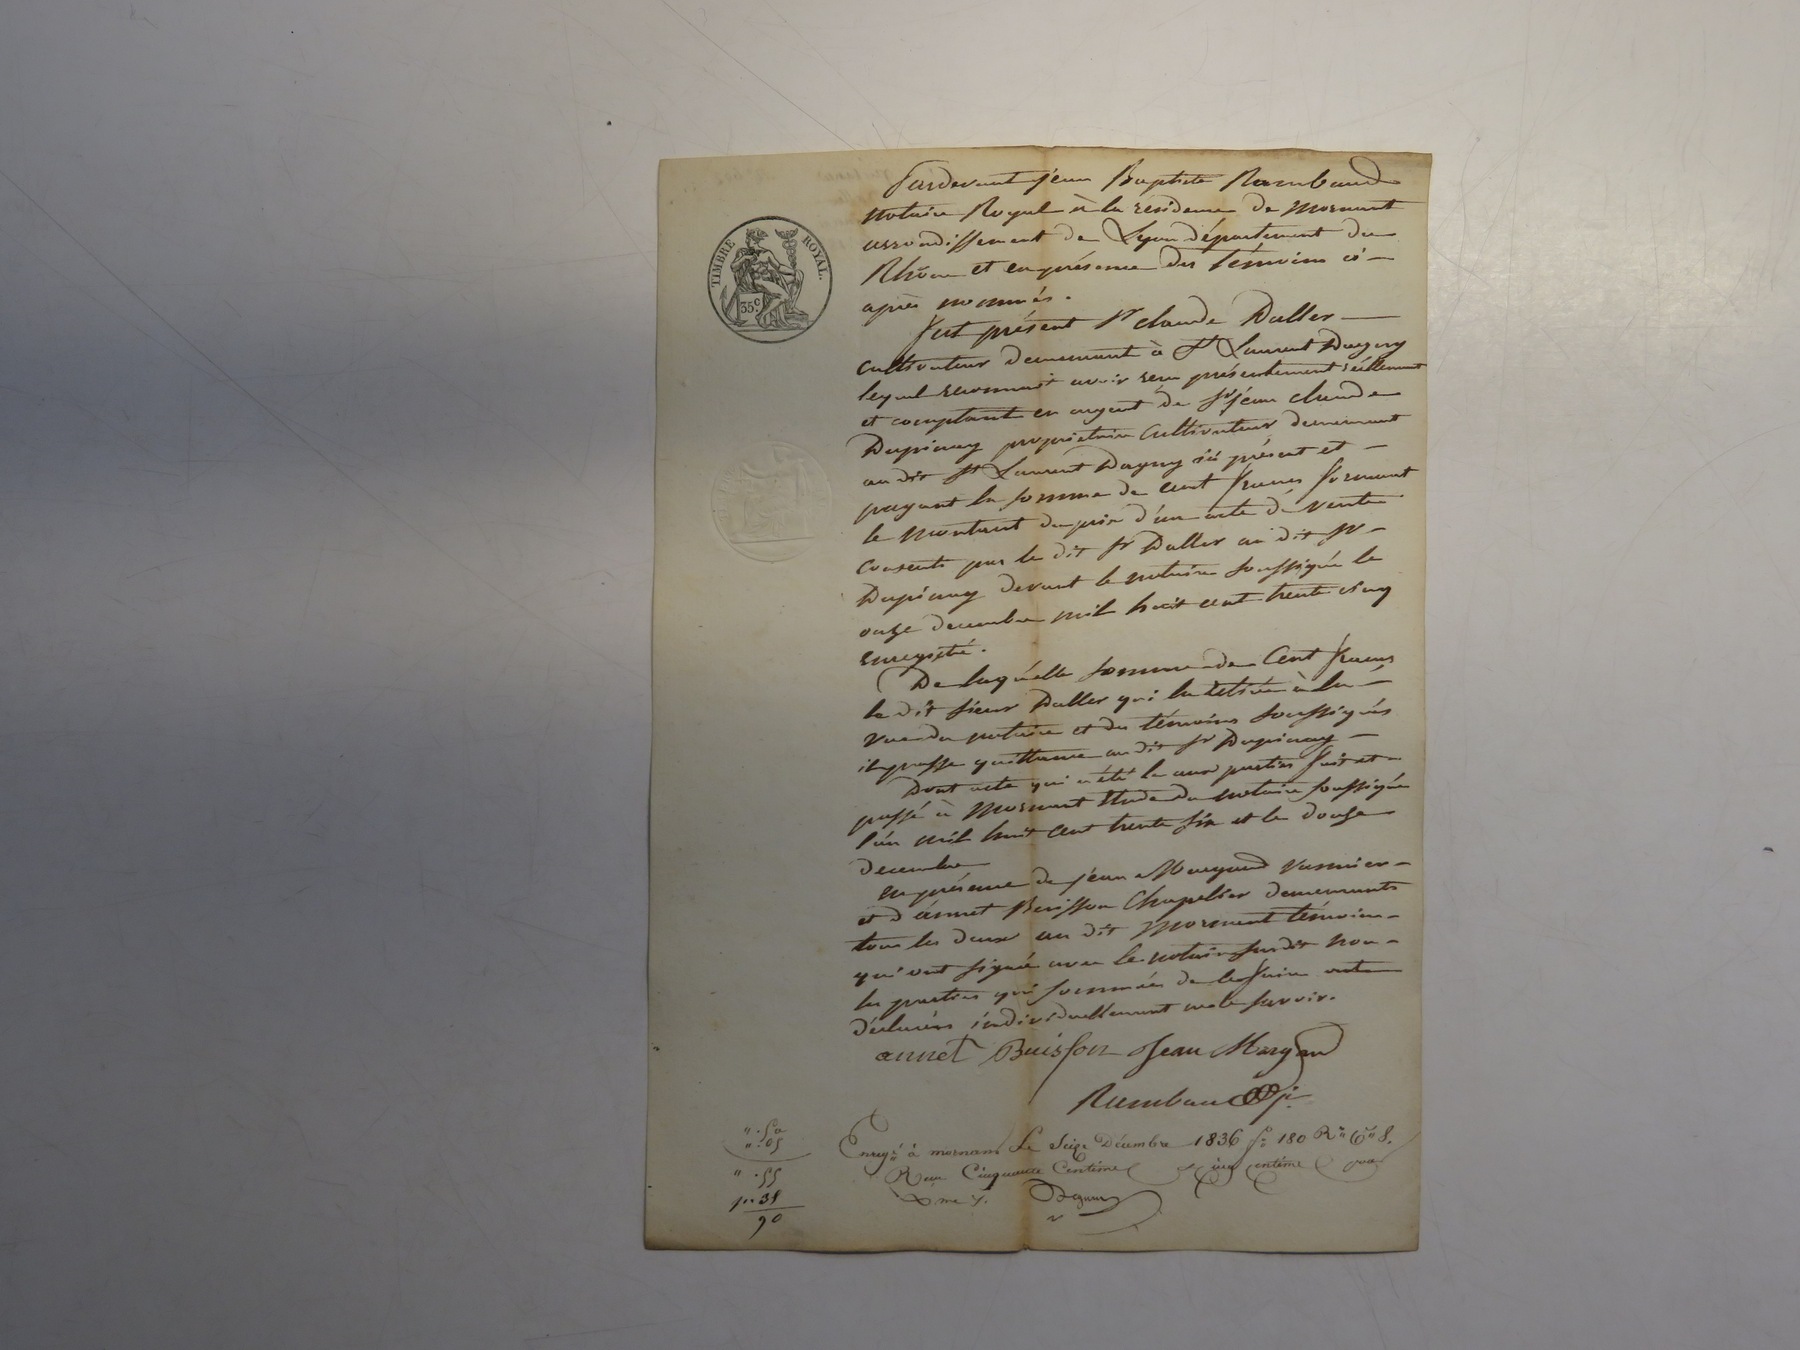 TIMBRE ROYAL.
35 c
Pardevant jean Baptiste Rambaud
notaire Royal à la résidence de Mornant
arrondissement de Lyon département du
Rhône et en présence des témoins ci-
après nommés.
fut présent Sr claude Daller
cultivateur demeurant à St Laurent Dagny
lequel reconnait avoir reçu présentement réellement
et comptant en argent de Sr jean claude
Dupinay propriétaire cultivateur demeurant
au dit St Laurent Dagny ici présent et
payant la somme de cent francs formant
le montant du prix d'un acte de vente
consenti par le dit Sr Daller au dit Sr
Dupinay devant le notaire soussigné le
onze decembre mil huit cent trente cinq
enregistré.
De laquelle somme de Cent francs
le dit sieur Daller qui la retirée à la
vue du notaire et des témoins soussignés
en passe quittance au dit Sr Dupinay
Dont acte qui a été lu aux parties fait et
passé à Mornant Etude du notaire soussigné
l'an mil huit cent trente six et le douze
decembre
en présence de jean Margand vannier
et d'annet Buisson Chapelier demeurants
tous les deux au dit Mornant témoins
qui ont signé avec le notaire susdit non
les parties qui sommées de le faire ont
déclarés individuellement ne le savoir.
annet Buisson Jean Margan
Rambaud
". 50
". 05
". 55
p. 35
90
Enregé à mornant le Seize Décembre 1836 fo 180 Ro Ce 8.
Reçu Cinquante Centimes et cinq centimes pour